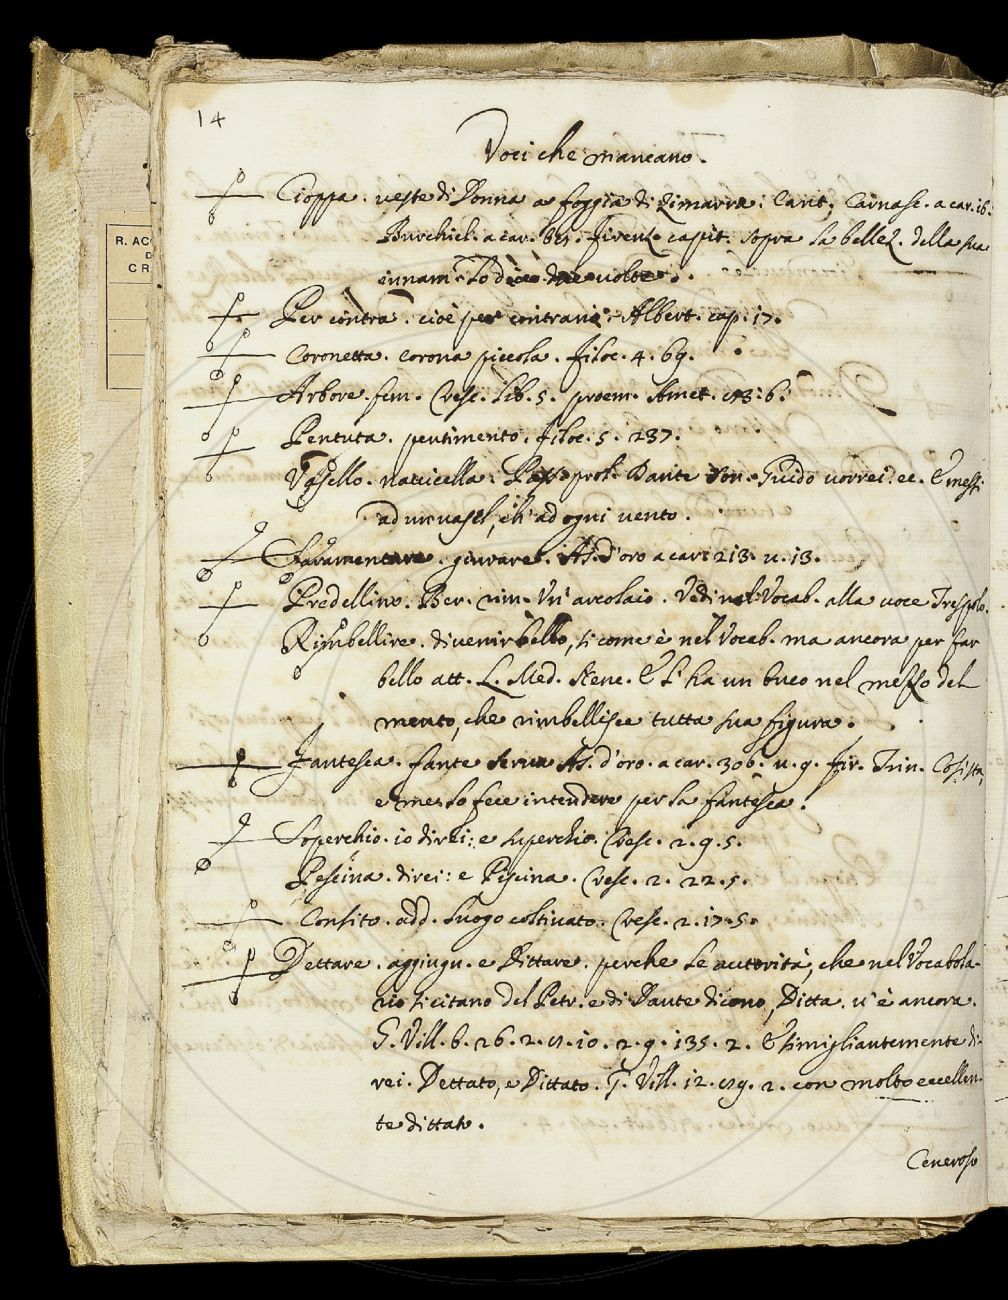 14
Voci che mancano.
Cioppa. veste di Donna a foggia di zimarra: Cant. Carnasc. a car. 16.
Burchiel. a car. Firenz. capit. sopra la bellez. della sua
innam. Lo dice due volte.
Per contra. cioè per contrario. Albert. cap. 17.
Coronetta. corona piccola. Filoc. 4. 69.
Arbore. fem. Cresc. lib. 5. proem. Amet. 6.
Pentuta. pentimento. Filoc. 5. 237.
Vasello. navicella. Dante Son. Guido vorrei. ec. E messi
ad un vasel, ch' ad ogni vento.
Saramentare. giurare. As. d'oro a car. 213. u. 13.
Predellino. Ber. rim. Un' arcolaio. Vedi nel Vocab. alla voce Trespolo.
Rimbellire. divenir bello, si come è nel Vocab. ma ancora per far
bello att. L. Med. Nenc. E s' ha un buco nel mezzo del
mento, che rimbellisce tutta sua figura.
Fantesca. fante serva As. d'oro. a car. 306. u. 9. Fir. Trin. Così sta,
e messo fece intendere per la fantesca.
Soperchio. io direi: e superchio. Cresc. 2. 9. 5.
Pescina. direi: e Piscina. Cresc. 2. 22. 5.
Consito. add. luogo coltivato. Cresc. 2. 17. 5.
Dettare. aggiugn. e Dittare. perche le autorità, che nel Vocabola-
rio si citano del Petr. e di Dante dicono, Ditta. v' è ancora.
G. Vill. 6. 26. 2. 10. 2. 9. 135. 2. E simigliantemente di-
rei. Dettato, e Dittato. G. Vill. 12. 2. con molto eccellen-
te dittato.
Ceneroso
R. AC
D
CR